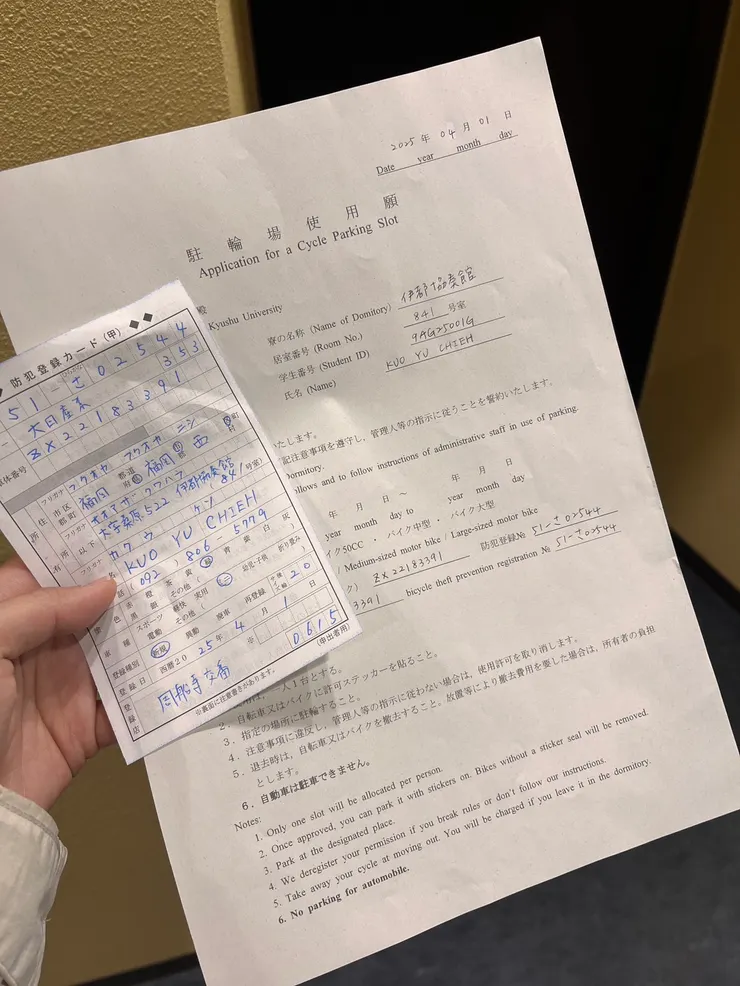 2025 年 04 月 01 日
Date year month day
駐輪場使用願
Application for a Cycle Parking Slot
殿
Kyushu University
寮の名称 (Name of Domitory) 伊都協奏館
居室番号 (Room No.) 841 号室
学生番号 (Student ID) 9AG25001G
氏名 (Name) KUO YU CHIEH
いたします。
記注意事項を遵守し、管理人等の指示に従うことを誓約いたします。
Dormitory.
llows and to follow instructions of administrative staff in use of parking.
年 月 日 ~ 年 月 日
year month day to year month day
イク50CC ・ バイク中型 ・ バイク大型
/ Medium-sized motor bike / Large-sized motor bike
ク) ZX22183391 防犯登録№ 51-さ02544
3391 bicycle theft prevention registration № 51-さ02544
一人1台とする。
2. 自転車又はバイクに許可ステッカーを貼ること。
3. 指定の場所に駐輪すること。
4. 注意事項に違反し、管理人等の指示に従わない場合は、使用許可を取り消します。
5. 退去時は、自転車又はバイクを撤去すること。放置等により撤去費用を要した場合は、所有者の負担
とします。
6. 自動車は駐車できません。
Notes:
1. Only one slot will be allocated per person.
2. Once approved, you can park it with stickers on. Bikes without a sticker seal will be removed.
3. Park at the designated place.
4. We deregister your permission if you break rules or don't follow our instructions.
5. Take away your cycle at moving out. You will be charged if you leave it in the dormitory.
6. No parking for automobile.
防犯登録カード(甲)
51-さ02544
大日産業 353
ZX22183391
車体番号
フリガナ フクオカ フクオカ ニシ
住所 福岡 都道府県 福岡 市 郡 西 区 町村
フリガナ オオアザ クワバラ
以下 大字桑原522 伊都協奏館 841号室)
フリガナ カク ウ ケン
KUO YU CHIEH
(092) 806-5779
赤 橙 茶 黄 緑 青 紫 白 灰
黒 銀 その他(
車種 スポーツ 軽快 実用 ミニ 幼児・子供 折り畳み
電動 その他( 20
登録種別 新規 異動 廃車 再登録
登録日 西暦2025年 4月 1日
登録店 周船寺交番 0615
(申出者用)
※裏面に注意書きがあります。